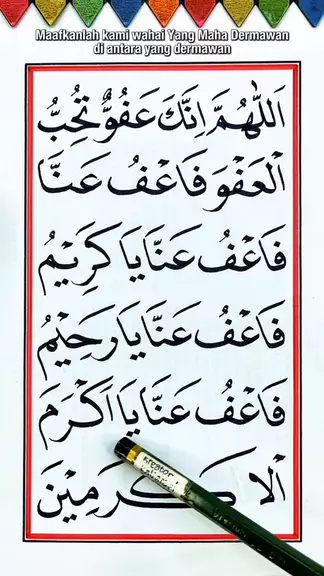 Maafkanlah kami wahai Yang Maha Dermawan
di antara yang dermawan
اَللّٰهُمَّ اِنَّكَ عَفُوٌّ تُحِبُّ
الْعَفْوَ فَاعْفُ عَنَّا
فَاعْفُ عَنَّا يَا كَرِيْمُ
فَاعْفُ عَنَّا يَا رَحِيْمُ
فَاعْفُ عَنَّا يَا اَكْرَمَ
الْاَكْرَمِيْنَ
kreator